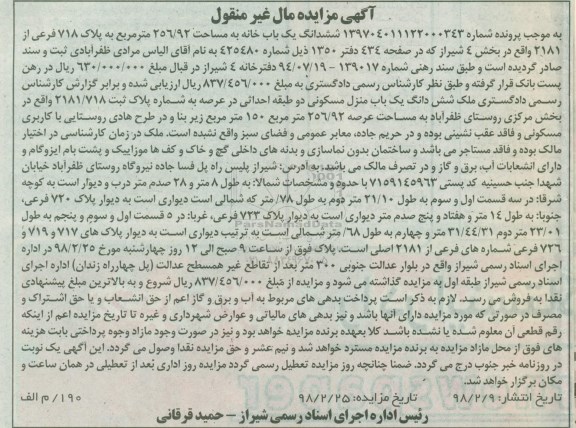 آگهی مزایده مال غیر منقول
به موجب پرونده شماره ۱۳۹۷۰۴۰۱۱۱۲۲۰۰۰۳۴۳ ششدانگ یک باب خانه به مساحت ۲۵۶/۹۲ مترمربع به پلاک ۷۱۸ فرعی از
۲۱۸۱ واقع در بخش ۴ شیراز که در صفحه ۴۳۴ دفتر ۱۳۵۰ ذیل شماره ۴۲۵۴۸۰ به نام آقای الیاس مرادی ظفرآبادی ثبت و سند
صادر گردیده است و طبق سند رهنی شماره ۱۳۹۰۱۷ - ۹۴/۰۷/۱۹ دفترخانه ۴ شیراز در قبال مبلغ ۶۳۰/۰۰۰/۰۰۰ ریال در رهن
پست بانک قرار گرفته و طبق نظر کارشناس رسمی دادگستری به مبلغ ۸۳۷/۴۵۶/۰۰۰ ریال ارزیابی شده و برابر گزارش کارشناس
رسمی دادگستری ملک شش دانگ یک باب منزل مسکونی دو طبقه احداثی در عرصه به شماره پلاک ثبت ۲۱۸۱/۷۱۸ واقع در
بخش مرکزی روستای ظفرآباد به مساحت عرصه ۲۵۶/۹۲ متر مربع ۱۵۰ متر مربع زیر بنا و در طرح هادی روستایی با کاربری
مسکونی و فاقد عقب نشینی بوده و در حریم جاده، معابر عمومی و فضای سبز واقع نشده است. ملک در زمان کارشناسی در اختیار
مالک بوده و فاقد مستاجر می باشد و ساختمان بدون نماسازی و بدنه های داخلی گچ و خاک و کف ها موزاییک و پشت بام ایزوگام و
دارای انشعابات آب، برق و گاز و در تصرف مالک می باشد. به آدرس: شیراز پلیس راه پل فسا جاده نیروگاه روستای ظفرآباد خیابان
شهدا جنب حسینیه کد پستی ۷۱۵۹۱۴۵۹۶۳ با حدود و مشخصات شمالا: به طول ۸ متر و ۲۸ صدم متر درب و دیوار است به کوچه
شرقا: در سه قسمت اول و سوم به طول ۲۱/۱۰ متر دوم به طول ۷۸/ متر که شمالی است دیواری است به دیوار پلاک ۷۲۰ فرعی،
جنوبا: به طول ۱۴ متر و هفتاد و پنج صدم متر دیواری است به دیوار پلاک ۷۲۳ فرعی، غربا: در ۵ قسمت اول و سوم و پنجم به طول
۲۳/۰۱ متر دوم ۳۱/۴۴/۲۱ متر و چهارم به طول ۶۸/ متر شمالی است به ترتیب دیواری است به دیوار پلاک های ۷۱۷ و ۷۱۹ و
۷۲۶ فرعی شماره های فرعی از ۲۱۸۱ اصلی است. پلاک فوق از ساعت ۹ صبح الی ۱۲ روز چهارشنبه مورخ ۹۸/۲/۲۵ در اداره
اجرای اسناد رسمی شیراز واقع در بلوار عدالت جنوبی ۳۰۰ متر بعد از تقاطع غیر همسطح عدالت (پل چهارراه زندان) اداره اجرای
اسناد رسمی شیراز طبقه اول به مزایده گذاشته می شود و مزایده از مبلغ ۸۳۷/۴۵۶/۰۰۰ ریال شروع و به بالاترین مبلغ پیشنهادی
نقدا به فروش می رسد. لازم به ذکر است پرداخت بدهی های مربوط به آب و برق و گاز اعم از حق انشعاب و یا حق اشتراک و
مصرف در صورتی که مورد مزایده دارای آنها باشد و نیز بدهی های مالیاتی و عوارض شهرداری و غیره تا تاریخ مزایده اعم از اینکه
رقم قطعی آن معلوم شده یا نشده باشد کلا بعهده برنده مزایده خواهد بود و نیز در صورت وجود مازاد وجوه پرداختی بابت هزینه
های فوق از محل مازاد مزایده به برنده مزایده مسترد خواهد شد و نیم عشر و حق مزایده نقدا وصول می گردد. این آگهی یک نوبت
در روزنامه خبر جنوب درج می گردد. ضمنا چنانچه روز مزایده تعطیل رسمی گردد مزایده روز اداری بعد از تعطیلی در همان ساعت و
مکان برگزار خواهد شد.
تاریخ انتشار: ۹۸/۲/۹ تاریخ مزایده: ۹۸/۲/۲۵ ۱۹۰/م الف
رئیس اداره اجرای اسناد رسمی شیراز - حمید فرقانی